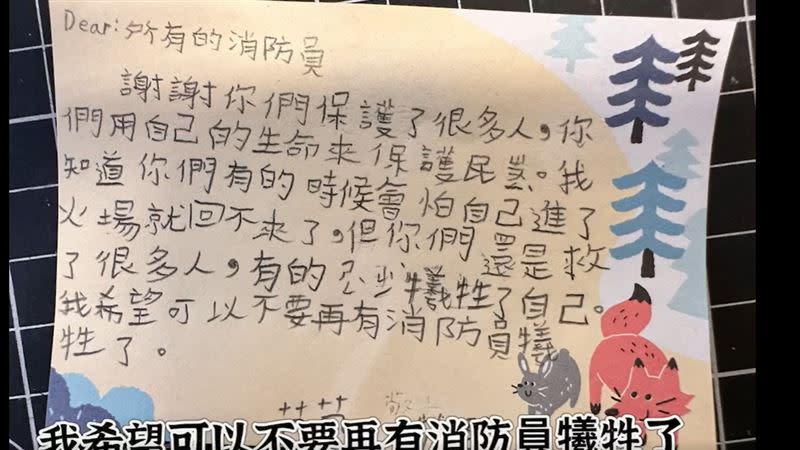 Dear:所有的消防員
謝謝你們保護了很多人,你
們用自己的生命來保護民眾。我
知道你們有的時候會怕自己進了
火場就回不來了,但你們還是救
了很多人,有的 犧牲了自己。
我希望可以不要再有消防員犧
牲了。
敬上
我希望可以不要再有消防員犧牲了